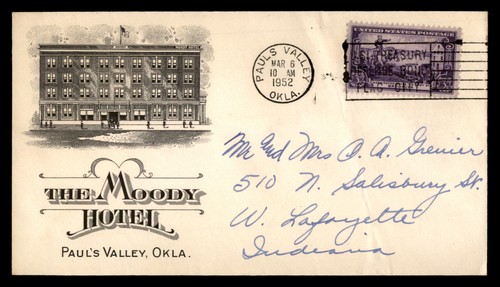 THE MOODY
HOTEL
PAUL'S VALLEY, OKLA.
PAULS VALLEY
MAR 6
10 AM
1952
OKLA.
UNITED STATES POSTAGE
TREASURY
Mr and Mrs O. A. Grenier
510 N. Salisbury St.
W. Lafayette
Indiana